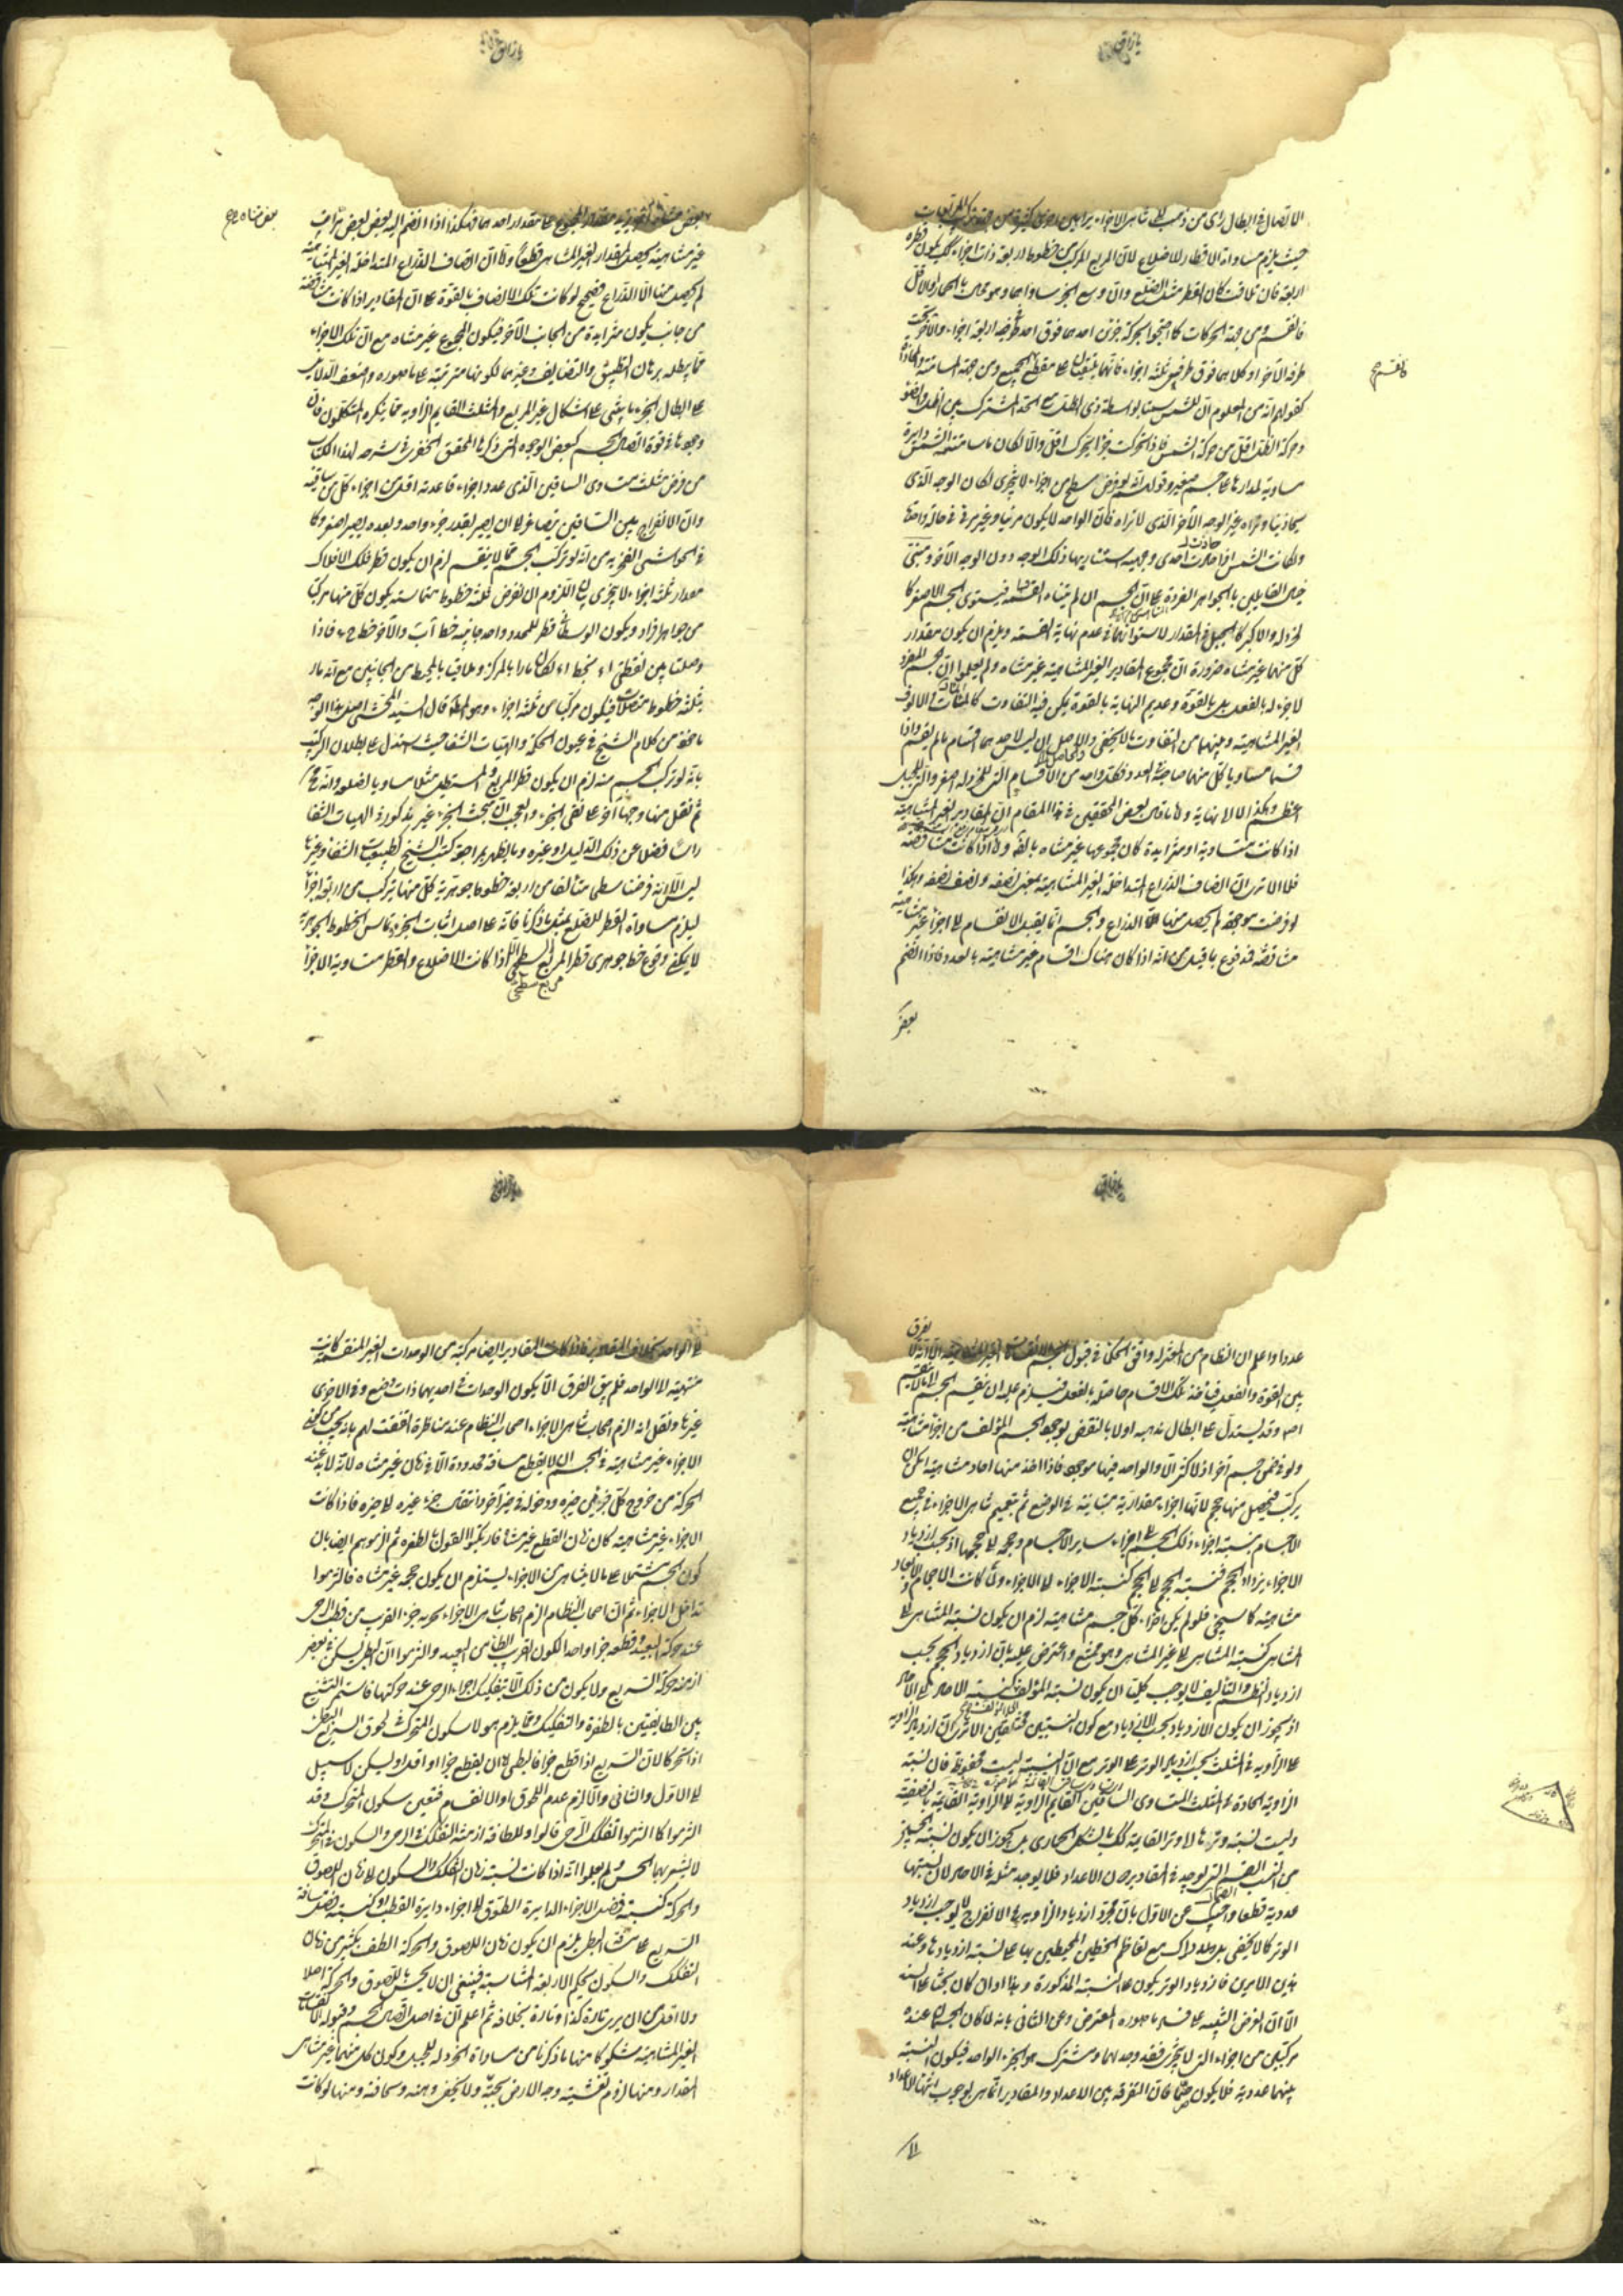 الاتصال في ابطال رأي من ذهب الى تناهي الاجزاء براهين اخرى كثيرة من جهة
حيث يلزم مساواة الاقطار للاضلاع لان المربع المركب من خطوط اربعة ذات اجزاء كك يكون قطره
اربعة فان تلاقت كان القطر مثل الضلع وان وسع الجزء ساواهما وهو محال بالحمار والاقل
فانقسم ومن جهة الحركات كما اخذوا لحركة جزئين احدهما فوق احد طرفي اربعة اجزاء والآخر تحت
طرفه الآخر او كلاهما فوق طرفي ثلثة اجزاء فانهما يلتقيان على مقطع الجميع ومن جهة المسامتة والمحاذاة
كقولهم انه من المعلوم ان للشمس سمتا بواسطة ذي الظل مع الحد المشترك بين الظل والضوء
وحركة الظل اقل من حركة الشمس فاذا تحركت جزءا تحرك اقل والا لكان ما سامتته الشمس دايرة
مساوية لمدارها على جسم صغير وقولهم انه لو فرض سطح من اجزاء لا يتجزى لكان الوجه الذي
يحاذينا ونراه غير الوجه الآخر الذي لا نراه فان الواحد لا يكون مرئيا وغير مرئي في حالة واحدة
ولكانت الشمس اذا حاذت احدى وجهيه استنار بها ذلك الوجه دون الوجه الآخر ومبنى
خيال القايلين بالجواهر الفردة على ان الجسم ان لم يتناه القسمة فيستوي الجسم الاصغر كا
لخردلة والاكبر كالجبل في المقدار لاستوائهما في عدم نهاية القسمة ويلزم ان يكون مقدار
كل منهما غير متناه ضرورة ان مجموع المقادير الغير المتناهية غير متناه ولم يعلموا ان الجسم المفرد
لا جزء له بالفعل بل بالقوة وعديم النهاية بالقوة يمكن فيه التفاوت كالمئات والالوف
الغير المتناهية وبينهما من التفاوت ما لا يخفى والاصل ان ليس لاحدهما اقسام ما لم يقسم واذا
قسما مساويا كل منهما صاحبه في العدد فكل واحد من الاقسام التي للخردلة اصغر والتي للجبل
اعظم وهكذا الى لا نهاية ولا ما قال بعض المحققين في هذا المقام ان المقادير الغير المتناهية
اذا كانت متساوية او متزايدة كان مجموعها غير متناه بالقوة واذا كانت متناقصة
فلا الا ترى ان انصاف الذراع المتداخلة الغير المتناهية بمعنى نصفه ونصف نصفه وهكذا
لو فرضت موجودة لم يحصل منها الا الذراع والجسم انما يقبل الانقسام الى اجزاء غير متناهية
متناقصة فمدفوع بما قيل من انه اذا كان هناك اقسام غير متناهية بالعدد فاذا انضم
بعض
فانقسم ح
غير متناهية يحصل المقدار الغير المتناهي قطعا واما ان انصاف الذراع المتداخلة الغير المتناهية
لم يحصل منها الا الذراع فصحيح لو كانت تلك الانصاف بالقوة على ان المقادير اذا كانت متناقصة
من جانب يكون متزايدة من الجانب الآخر فيكون المجموع غير متناه مع ان تلك الاجزاء
مما يبطله برهان التطبيق والتضايف وغيرهما لكونها مترتبة على ما صوره واضعف الدلايل
على ابطال الجزء ما يبتني على اشكال غير المربع والمثلث القايم الزاوية مما ينكره المتكلمون فان
وجودها في قوة اتصال الجسم كبعض الوجوه التي ذكرها المحقق الخفري في شرحه لهذا الكتاب
من فرض مثلث متساوي الساقين الذي عدد اجزاء قاعدته اقل من اجزاء كل من ساقيه
وان الانفراج بين الساقين يتصاغر الى ان يصير بقدر جزء واحد وبعده يصير اصغر وكا
في الحواشي الفخرية من انه لو تركب الجسم مما لا ينقسم لزم ان يكون قطر فلك الافلاك
مقدار ثلثة اجزاء لا يتجزى بيان اللزوم ان نفرض ثلثة خطوط متماسة يكون كل منها مركبا
من جواهر افراد ويكون الوسطاني قطر للمحدد واحد جانبيه خط اب والآخر خط ج د فاذا
وصلنا بين نقطتي ا د بخط ا د لكان مارا بالمركز وملاقيا بالمحيط من الجانبين مع انه مار
بثلثة خطوط متصلات فيكون مركبا من ثلثة اجزاء وهو المط قال السيد المحشي اصل هذا الوجه
ماخوذ من كلام الشيخ في عيون الحكمة والهيات الشفا حيث استدل على بطلان التركيب
بانه لو تركب الجسم منه لزم ان يكون قطر المربع والمستطيل مثلا مساويا لضلعه وانه مح
ثم نقل منها وجها آخر على نفي الجزء والعجب ان مبحث الجزء غير مذكور في الهيات الشفا
راسا فضلا عن ذلك الدليل او غيره وبالظهر بمراجعة كتب الشيخ كطبيعيات الشفا وغيرها
ليس الا انه فرضنا سطحا متالفا من اربعة خطوط جوهرية كل منها يتركب من اربعة اجزا
ليلزم مساواة القطر للضلع بمثل ما ذكرنا فانه على اصل اثبات الجزء وتماس الخطوط الجوهرية
لا يمكن وقوع خط جوهري قطر المربع السطحي الا اذا كانت الاضلاع والقطر متساوية الاجزا
مربع سطحي
عددا واعلم ان النظام من المعتزلة وافق الحكما في قبول الجسم الانقسامات الغير المتناهية الا انه لا يفرق
بين القوة والفعل فياخذ تلك الاقسام حاصلة بالفعل فيلزم عليه ان ينقسم الجسم الى ما لا ينقسم
اصلا وقد يستدل على ابطال مذهبه اولا بالنقض بوجود الجسم المؤلف من اجزا متناهية
ولو في ضمن جسم آخر اذ لا كثرة الا والواحد فيها موجود فاذا اخذ منها احاد متناهية امكن ان
يركب فيحصل منها حجم لانها اجزاء مقدارية متباينة في الوضع ثم بتعميم تناهي الاجزاء في جميع
الاجسام بنسبة اجزاء ذلك الجسم الى اجزاء ساير الاجسام وحجمه الى حجمها اذ بحسب ازدياد
الاجزاء يزداد الحجم فنسبة الحجم الى الحجم كنسبة الاجزاء الى الاجزاء ولما كانت الاجسام والابعاد
متناهية كما سيجئ فلو لم يكن اجزاء كل جسم متناهية لزم ان يكون نسبة المتناهي الى
المتناهي كنسبة المتناهي الى غير المتناهي وهو ممتنع واعترض عليه بان ازدياد الحجم بحسب
ازدياد النظم والتاليف لا يوجب كليا ان يكون نسبة المؤلف كنسبة الاحاد الى الاحاد
اذ يجوز ان يكون الازدياد بحسب الازدياد مع كون النسبتين مختلفتين الا ترى ان ازدياد الزاوية
على الزاوية في المثلث بحسب ازدياد الوتر على الوتر مع ان النسبة ليست محفوظة فان نسبة
الزاوية الحادة في المثلث المتساوي الساقين القايم الزاوية الى الزاوية القايمة بالنصفية
وليست نسبة وترها الى وتر القايمة كك بالشكل الحماري بل يجوز ان يكون نسبة الحجمين
من النسب الصمية التي توجد في المقادير دون الاعداد فلا يوجد مثله في الاحاد لان نسبتها
عددية قطعا واجيب عن الاول بان مجرد ازدياد الزاوية والانفراج لا يوجب ازدياد
الوتر كما لا يخفى بل ولذاك مع تعاظم الخطين المحيطين بها على نسبة ازديادها وعند
هذين الامرين فازدياد الوتر يكون على النسبة المذكورة وهذا وان كان بحثا على السند
الا ان الغرض التنبيه على فساد ما صوره المعترض وعن الثاني بانه لما كان الجسمان عنده
مركبين من اجزاء التي لا يتجزى فقد وجد لهما مشترك هو الجزء الواحد فيكون النسبة
بينهما عددية فلا يكون صما فان التفرقة بين الاعداد والمقادير انما هي لوجوب انتهاء الاعداد
الى
الى الواحد بخلاف المقادير فاذا كانت المقادير ايضا مركبة من الوحدات الغير المنقسمة كانت
منتهية الى الواحد فلم يبق الفرق الا بكون الوحدات في احديهما ذات وضع وفي الاخرى
غيرها ونقل انه الزم اصحاب تناهي الاجزاء اصحاب النظام عند مناظرة اتفقت لهم بانه يجب من كون
الاجزاء غير متناهية في الجسم ان لا يقطع مسافة محدودة الا في زمان غير متناه لانه لا بد عند
الحركة من خروج كل جزء من حيزه ودخوله في حيز آخر وانتقال جزء غيره الى حيزه فاذا كانت
الاجزاء غير متناهية كان زمان القطع غير متناه فارتكبوا القول بالطفرة ثم الزموهم ايضا بان
كون الجسم مشتملا على ما لا يتناهى من الاجزاء يستلزم ان يكون حجمه غير متناه فالتزموا
تداخل الاجزاء ثم ان اصحاب النظام الزم اصحاب تناهي الاجزاء بحركة جزء القريب من قطب الرحى
عند حركة البعيد وقطعه جزءا واحدا لكون القريب ابطأ من البعيد والتزموا ان البطي يسكن في بعض
ازمنة حركة السريع ولا يكون من ذلك الا بتفكيك اجزاء الرحى عند حركتها فاستمر التشنيع
بين الطايفتين بالطفرة والتفكيك ومما يلزم هولا سكون المتحرك في لحوق السريع البطي
اذا تحركا لان السريع اذا قطع جزءا فالبطي اما ان يقطع جزءا او اقل او يسكن لا سبيل
الى الاول والثاني والا لزم عدم اللحوق او الانقسام فتعين سكون المتحرك وقد
التزموا كما التزموا تفكك الرحى قالوا وللطافة ازمنة التفكك في الرحى والسكون في المتحرك
لا يشعر بهما الحس ولم يعلموا انه اذا كانت نسبة زمان التفكك والسكون الى زمان اللصوق
والحركة كنسبة فضل الاجزاء الدايرة الطوق الى اجزاء دايرة القطب او كنسبة فضل مسافة
السريع على مسافة البطي لزم ان يكون زمان اللصوق والحركة الطف بكثير من زمان
التفكك والسكون بحكم الاربعة المتناسبة فينبغي ان لا يحس باللصوق والحركة اصلا
ولا اقل من ان يرى تارة كذا وتارة بخلافه ثم اعلم ان في اصل اتصال الجسم وقبوله الانقسامات
الغير المتناهية شكوكا منها ما ذكرنا من مساواة الخردلة للجبل وكون كل منهما غير متناهي
المقدار ومنها لزوم تغشية وجه الارض بحبة ولا يخفى وهنه وسخافته ومنها لو كانت